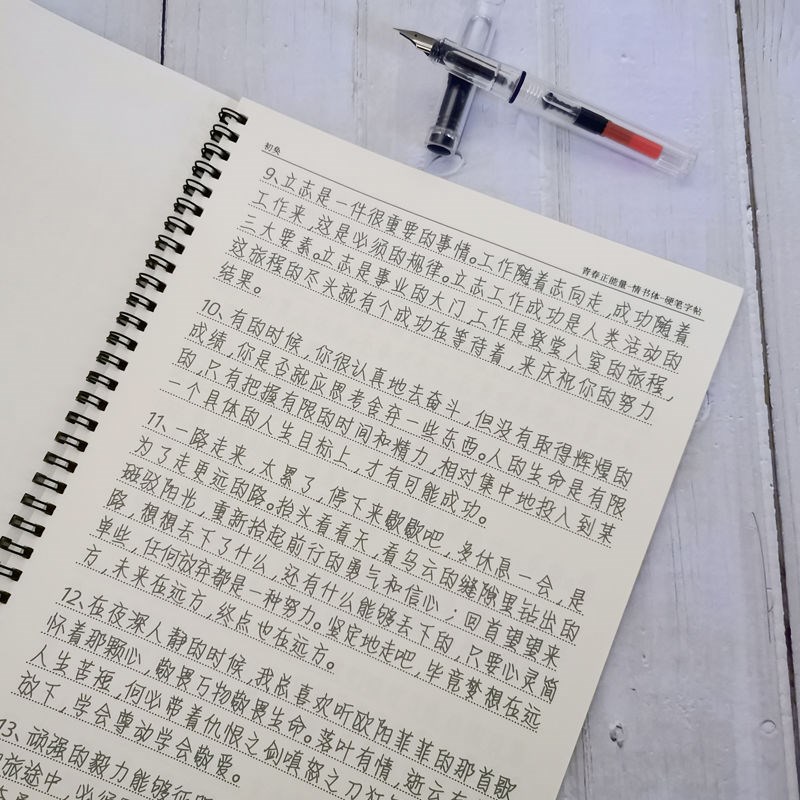 初奂
青春正能量-情书体-硬笔字帖
9、立志是一件很重要的事情。工作随着志向走,成功随着
工作来,这是必须的规律。立志工作成功是人类活动的
三大要素。立志是事业的大门,工作是登堂入室的旅程,
这旅程的尽头就有个成功在等待着,来庆祝你的努力
结果。
10、有的时候,你很认真地去奋斗,但没有取得辉煌的
成绩,你是否就应思考舍弃一些东西。人的生命是有限
的,只有把握有限的时间和精力,相对集中地投入到某
一个具体的人生目标上,才有可能成功。
11、一路走来,太累了,停下来歇歇吧,多休息一会,是
为了走更远的路。抬头看看天,看乌云的缝隙里钻出的
斑驳阳光,重新拾起前行的勇气和信心;回首望望来
路,想想丢下了什么,还有什么能够丢下的,只要心灵简
单些,任何放弃都是一种努力。坚定地走吧,毕竟梦想在远
方,未来在远方,终点也在远方。
12、在夜深人静的时候,我总喜欢听欧阳菲菲的那首歌
怀着那颗心,敬畏万物敬畏生命。落叶有情,逝云有
人生苦短,何必带着仇恨之剑嗔怒之刀狂
放下,学会尊动学会敬爱。
13、顽强的毅力能够征服
旅途中,必须